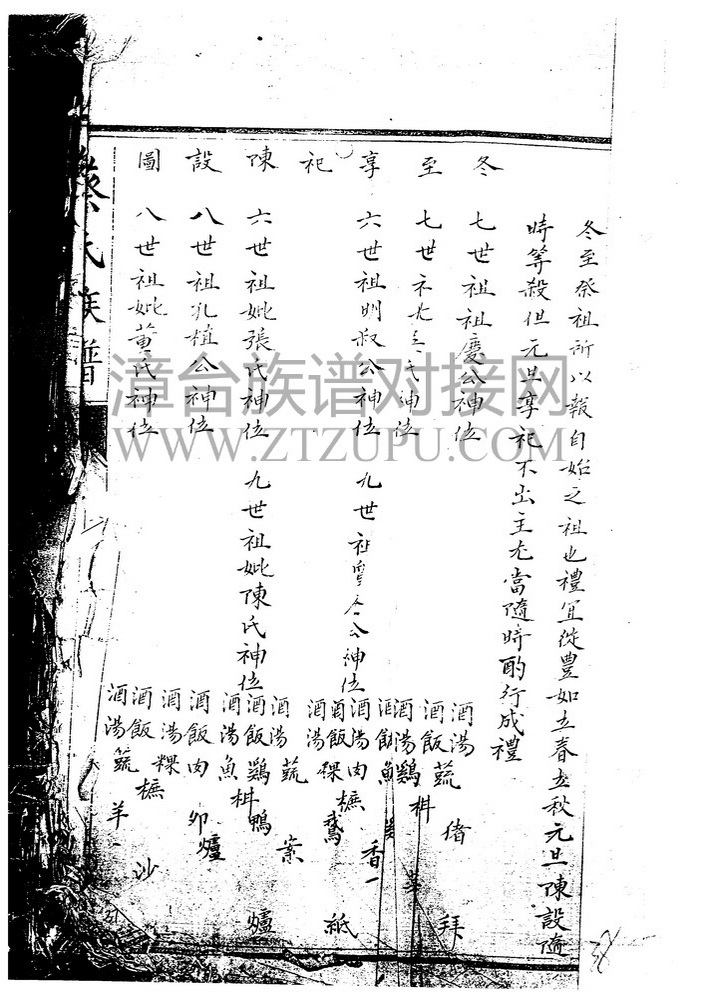 冬至祭祖所以報自始之祖也禮宜從豐如立春立秋元旦陳設隨
時等殺但元旦享祀不出主尤當隨時酌行成禮
冬至享祀陳設圖
七世祖祖慶公神位
七世 氏神位
六世祖明叔公神位 九世祖 公神位
六世祖妣張氏神位 九世祖妣陳氏神位
八世祖孔植公神位
八世祖妣黃氏神位
酒湯蔬
酒飯
酒湯鷄
酒飯魚
酒湯肉
酒飯粿
酒湯
酒湯蔬
酒飯鷄鴨
酒湯魚
酒飯肉卯
酒湯粿
酒飯
酒湯蔬羊
鵝
香一
案
爐
爐
紙
沙
拜
蔡氏族譜
漳台族谱对接网
WWW.ZTZUPU.COM